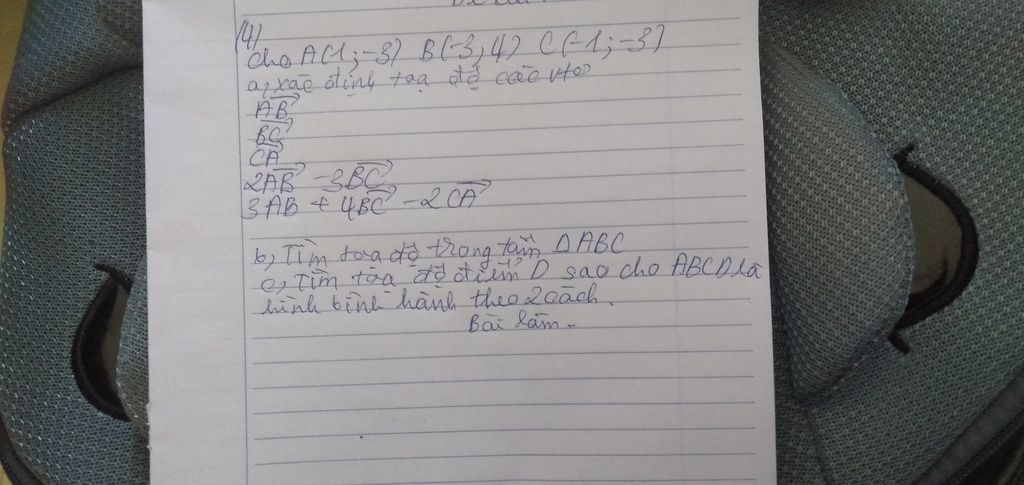 (4)
Cho A(1;-3) B(-3;4) C(-1;-3)
a, xác định toạ độ các vtơ
AB
BC
CA
2AB - 3BC
3AB + 4BC - 2CA
b, Tìm toạ độ trọng tâm ΔABC
c, Tìm tọa độ điểm D sao cho ABCD là
hình bình hành theo 2 cách.
Bài làm.